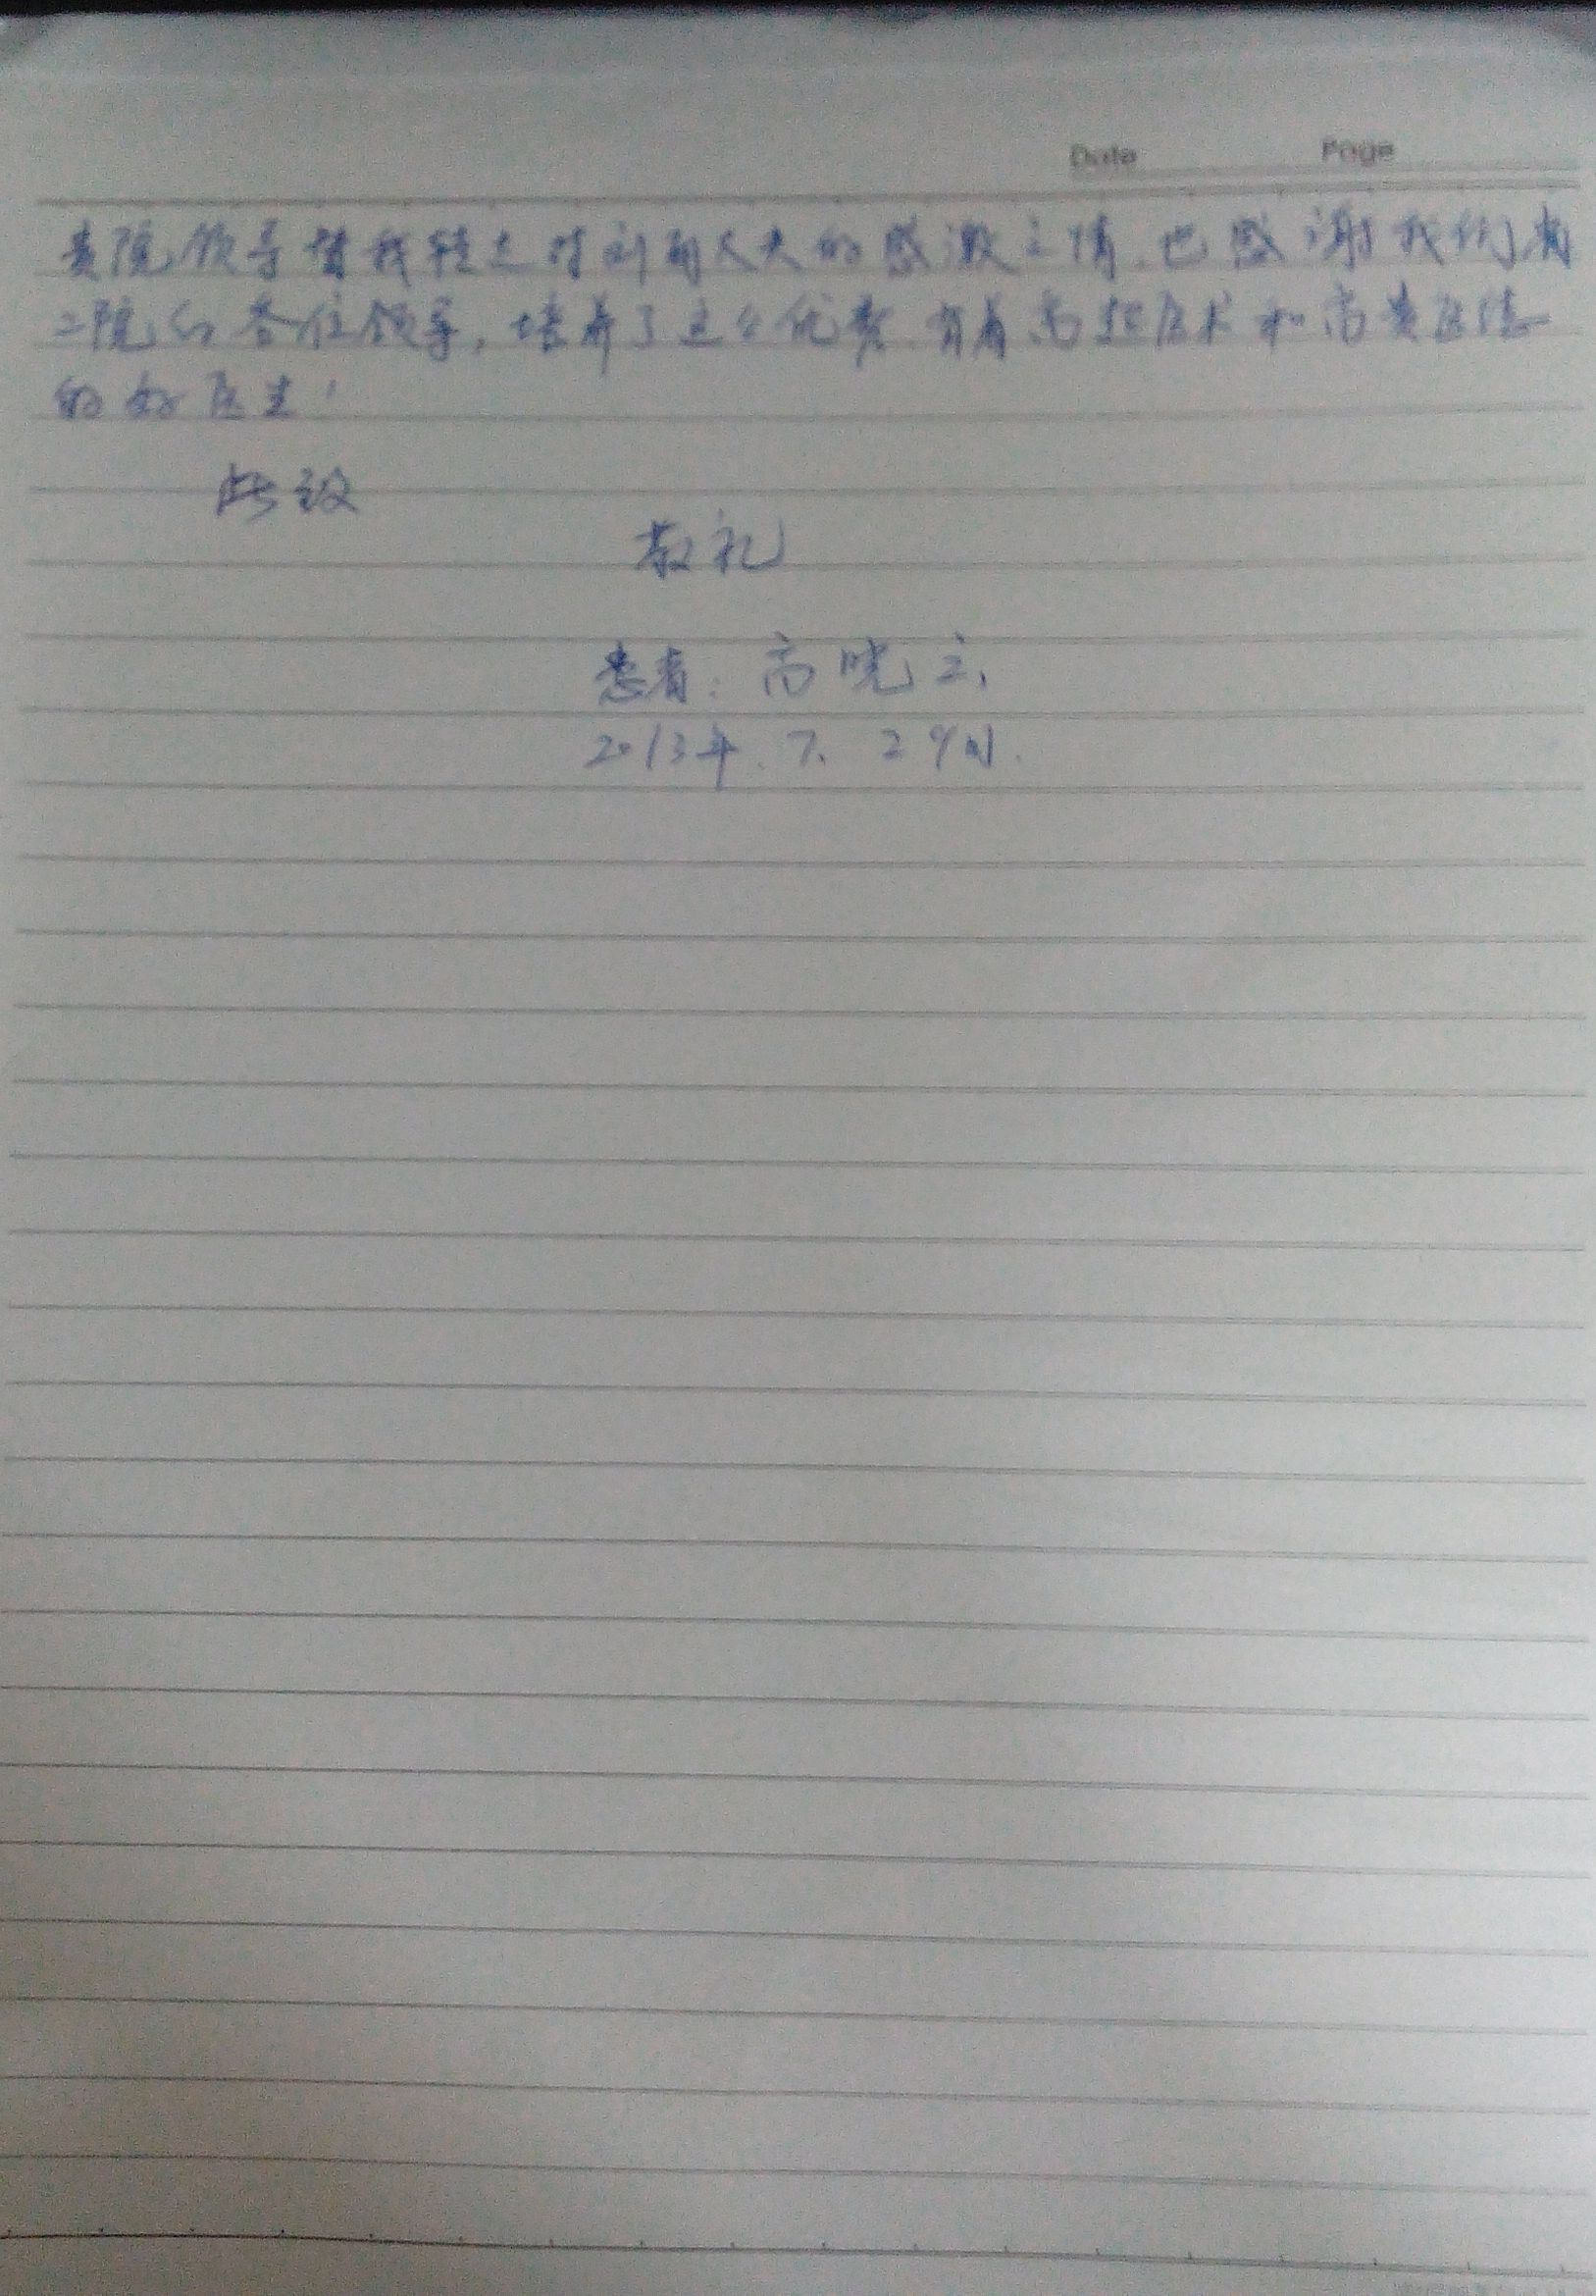 Date Page
贵院领导替我转达对刘大夫的感激之情.也感谢我们省
二院的各位领导,培养了这么优秀.有着高超医术和高贵医德
的好医生!
此致
敬礼
患者:高晓立
2013年.7.29日.